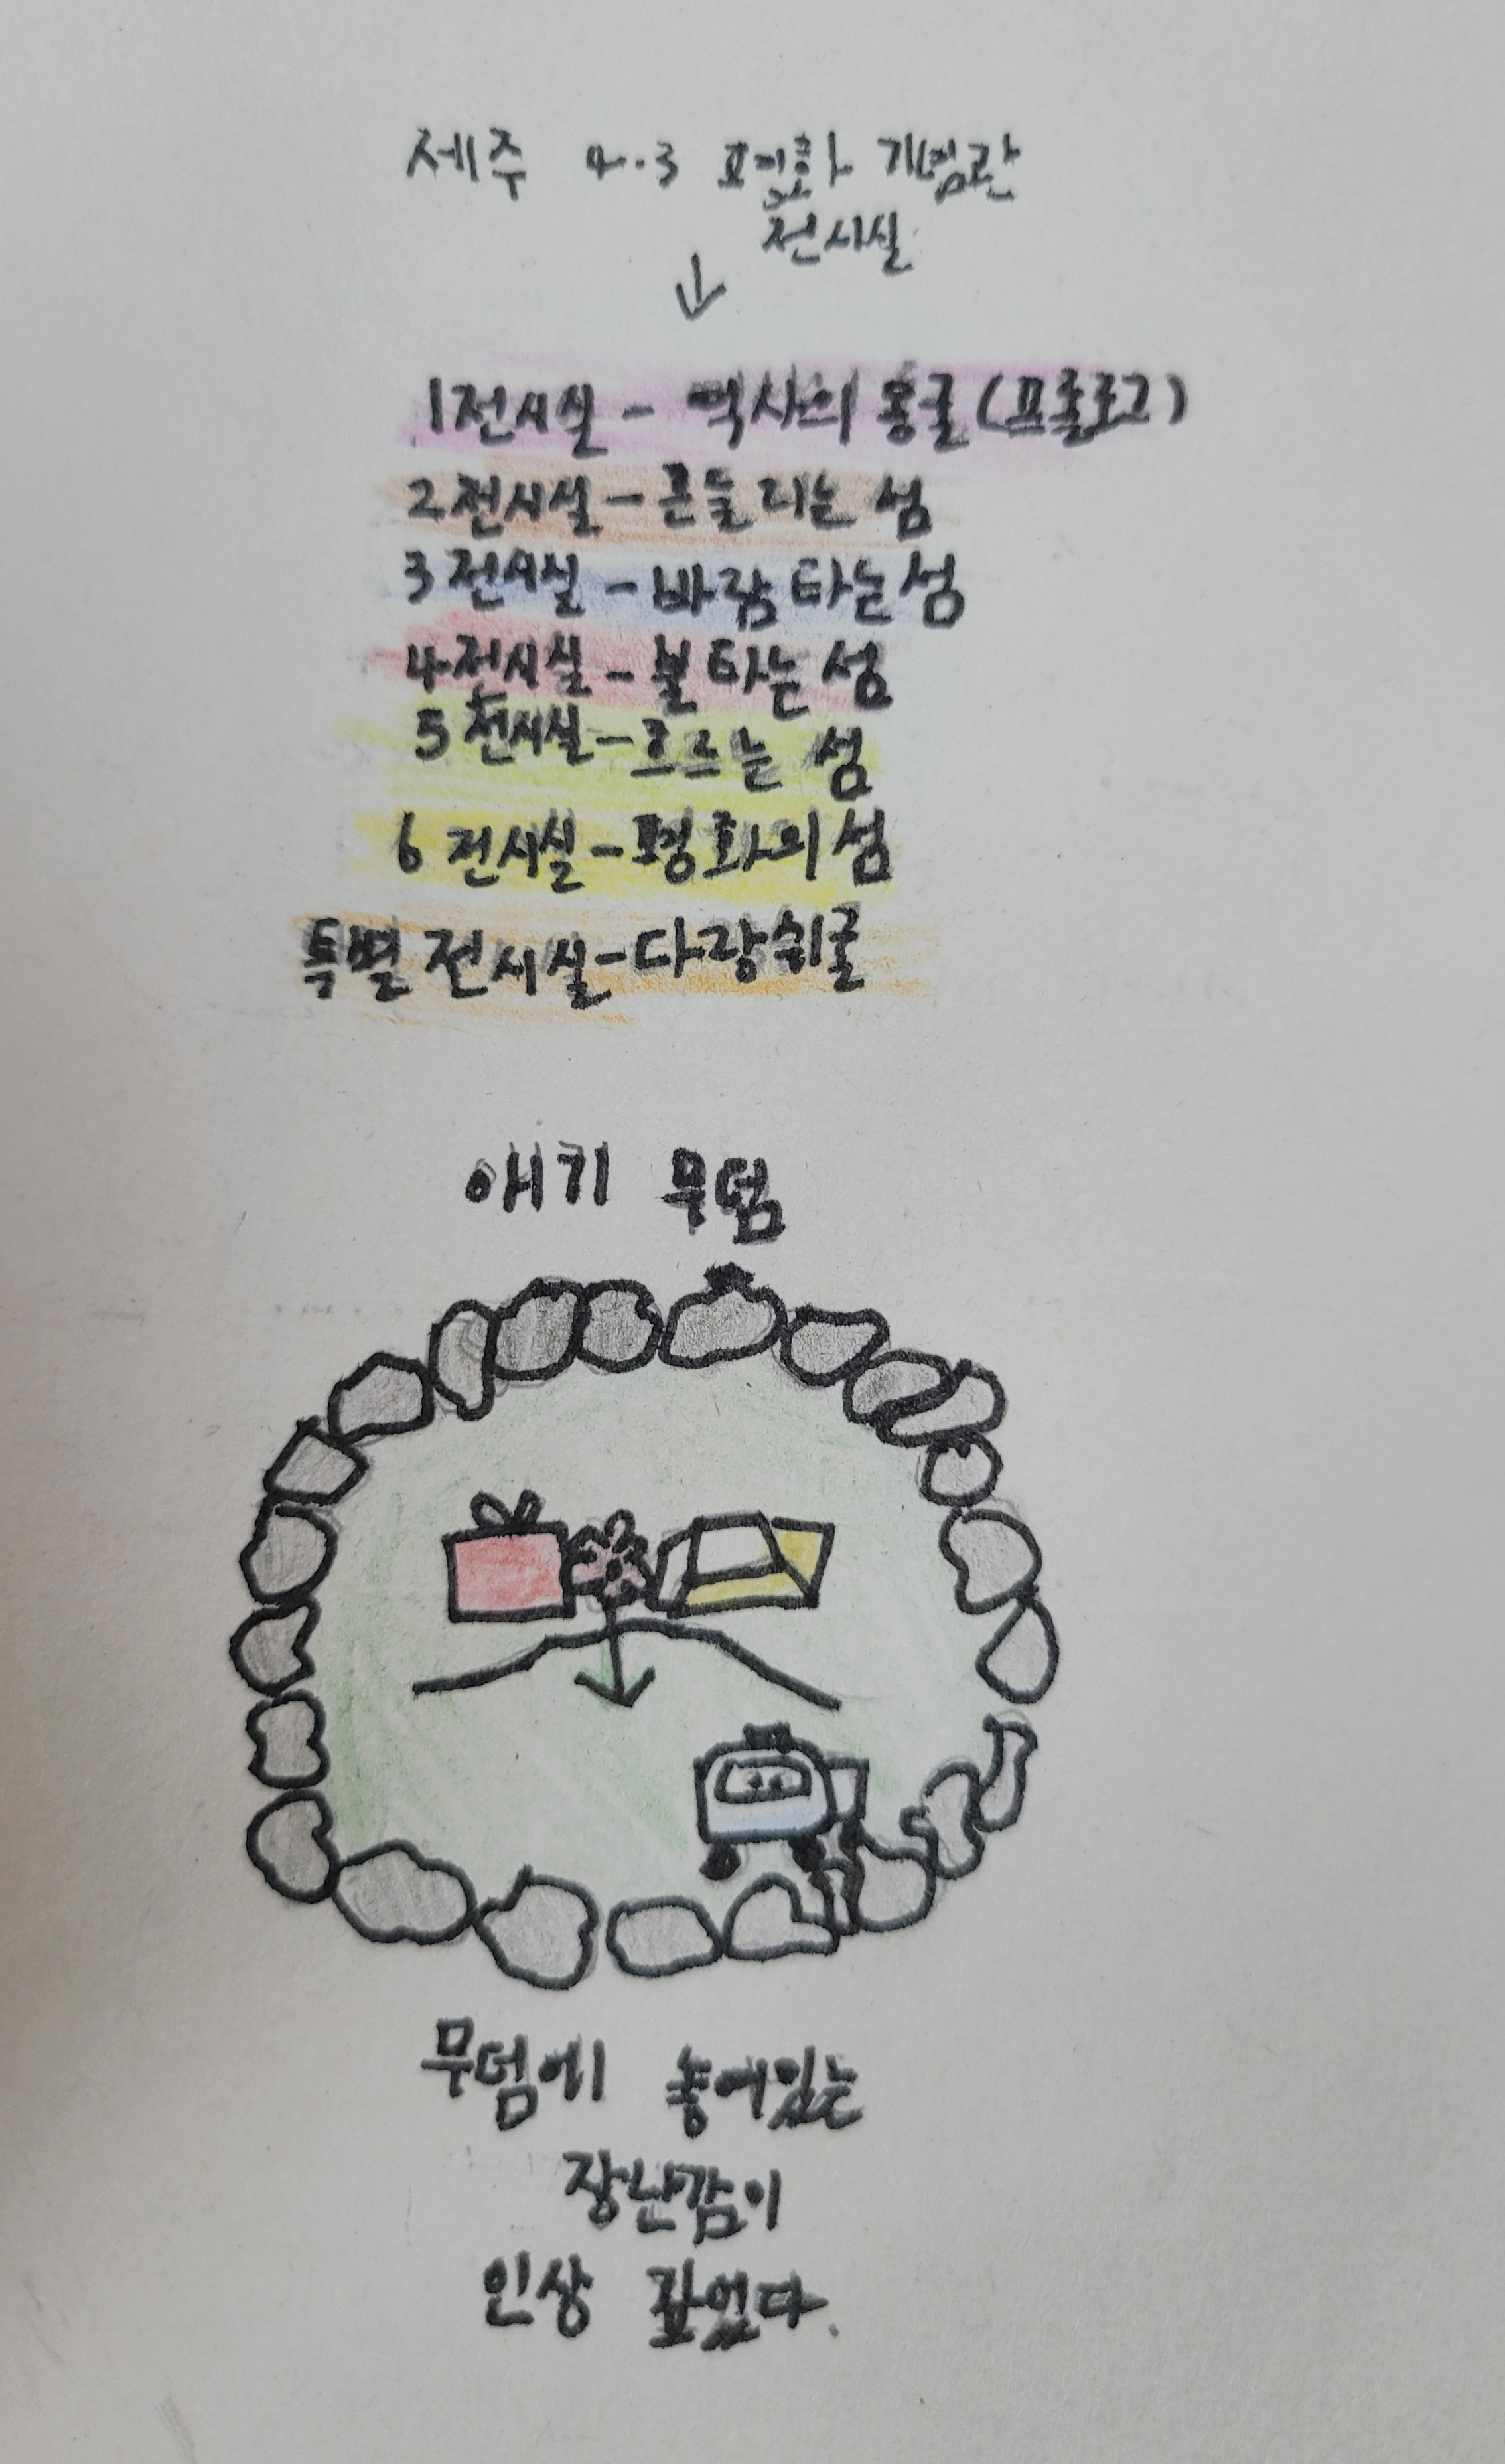 제주 4.3 평화 기념관
전시실
1전시실 - 역사의 동굴 (프롤로그)
2전시실 - 흔들리는 섬
3전시실 - 바람타는 섬
4전시실 - 불타는 섬
5전시실 - 흐르는 섬
6전시실 - 평화의 섬
특별전시실 - 다랑쉬굴
애기 무덤
무덤에 놓여있는
장난감이
인상 깊었다.